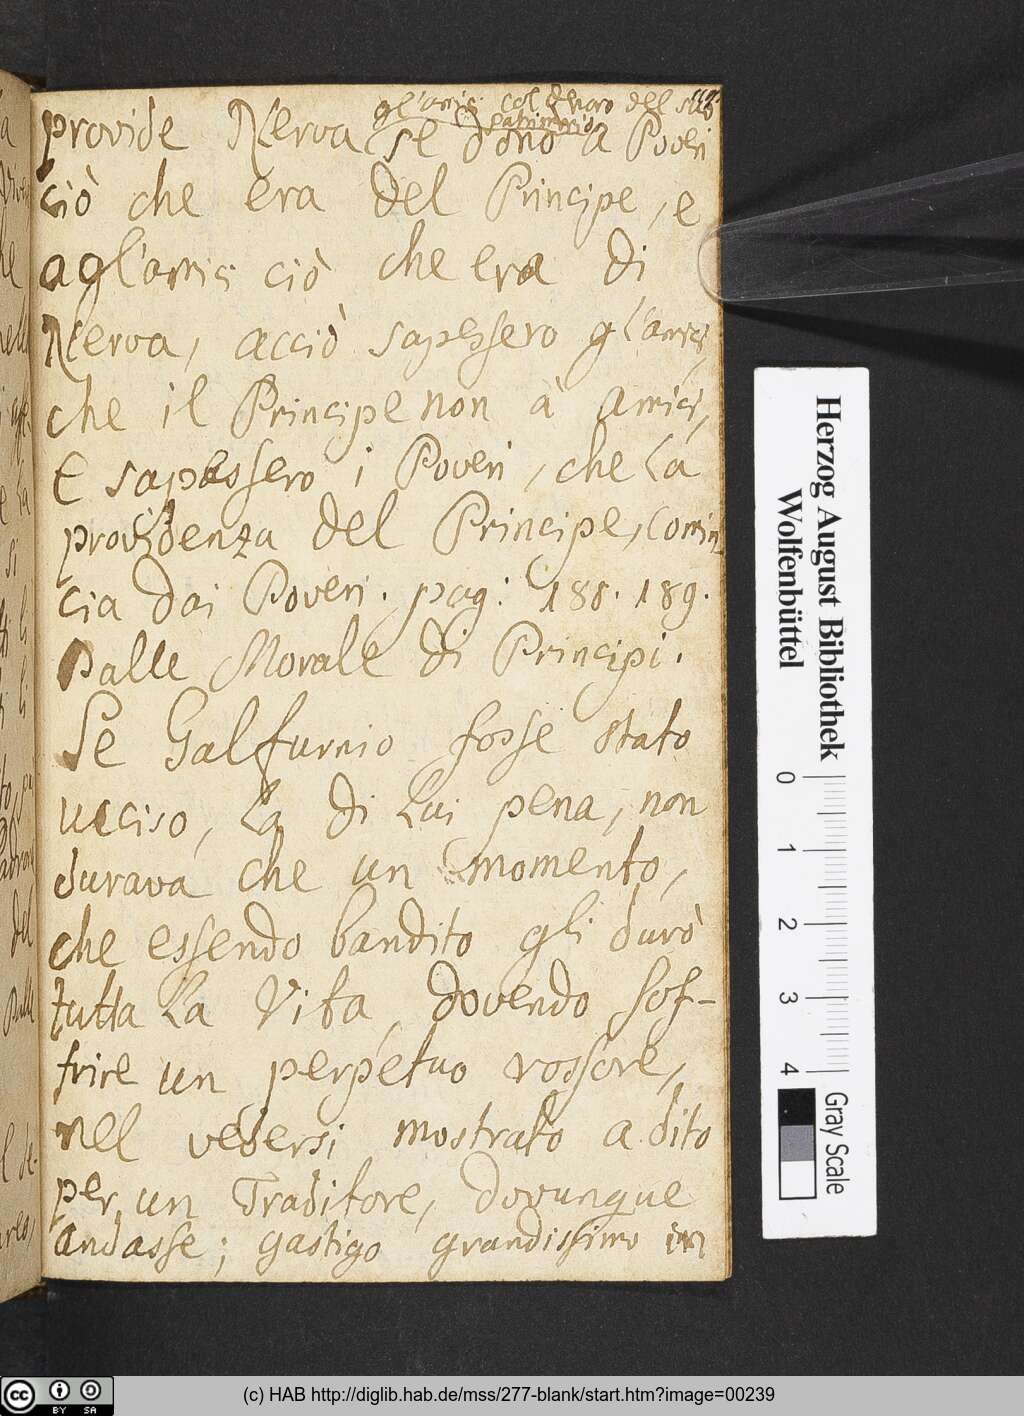 gl'amici col denaro del suo
patrimonio
provide Nerva se donò a Poveri
ciò che era del Principe, e
agl'amici ciò che era di
Nerva, acciò sapessero gl'amici,
che il Principe non à amici,
E sapessero i Poveri, che la
providenza del Principe, comin
cia dai Poveri. pag: 188. 189.
Dalle Morale di Principi.
Se Galfurnio fosse stato
ucciso, la di lui pena, non
durava che un momento,
che essendo bandito gli durò
tutta la Vita, dovendo sof-
frire un perpetuo rossore,
nel vedersi mostrato a dito
per un Traditore, dovunque
andasse; gastigo grandissimo in
Herzog August Bibliothek
Wolfenbüttel
0 1 2 3 4
Gray Scale
cc BY SA
(c) HAB http://diglib.hab.de/mss/277-blank/start.htm?image=00239